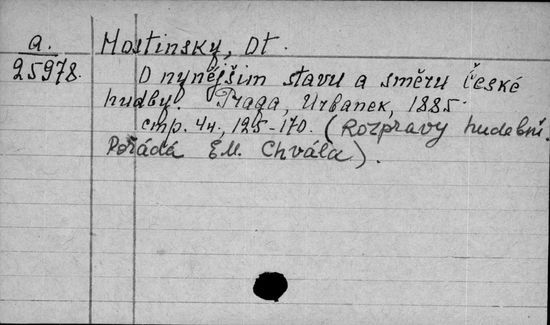 a.
25978.
Hostinsky, Ot.
O nynějšim stavu a směru České
hudby. Praga, Urbanek, 1885.
стр. 44, 125-170. (Rozpravy hudební.
Pořádá Em. Chvála).